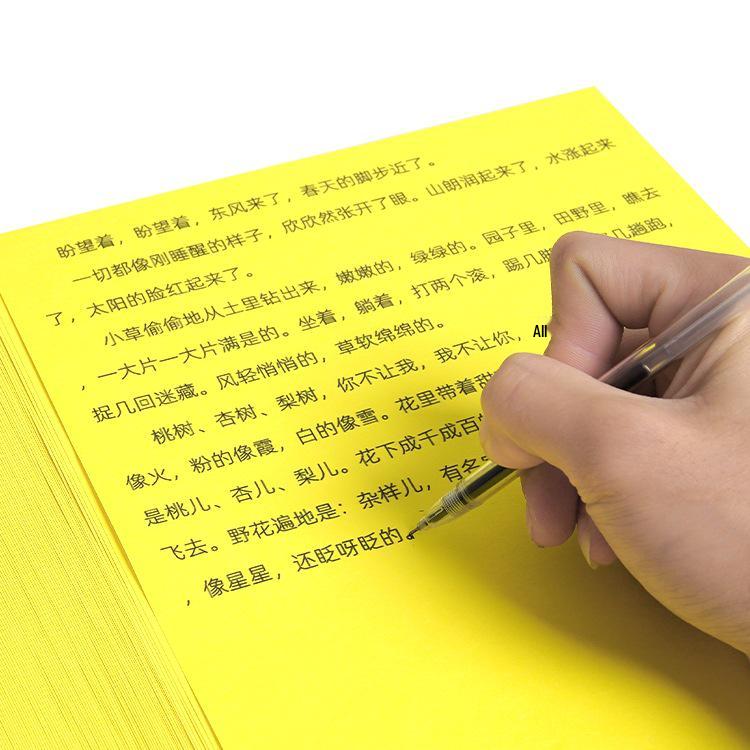 盼望着，盼望着，东风来了，春天的脚步近了。
一切都像刚睡醒的样子，欣欣然张开了眼。山朗润起来了，水涨起来
了，太阳的脸红起来了。
小草偷偷地从土里钻出来，嫩嫩的，绿绿的。园子里，田野里，瞧去
，一大片一大片满是的。坐着，躺着，打两个滚，踢几脚 几趟跑，
捉几回迷藏。风轻悄悄的，草软绵绵的。
桃树、杏树、梨树，你不让我，我不让你，
All
像火，粉的像霞，白的像雪。花里带着甜
是桃儿、杏儿、梨儿。花下成千成百
飞去。野花遍地是：杂样儿，有名
，像星星，还眨呀眨的。